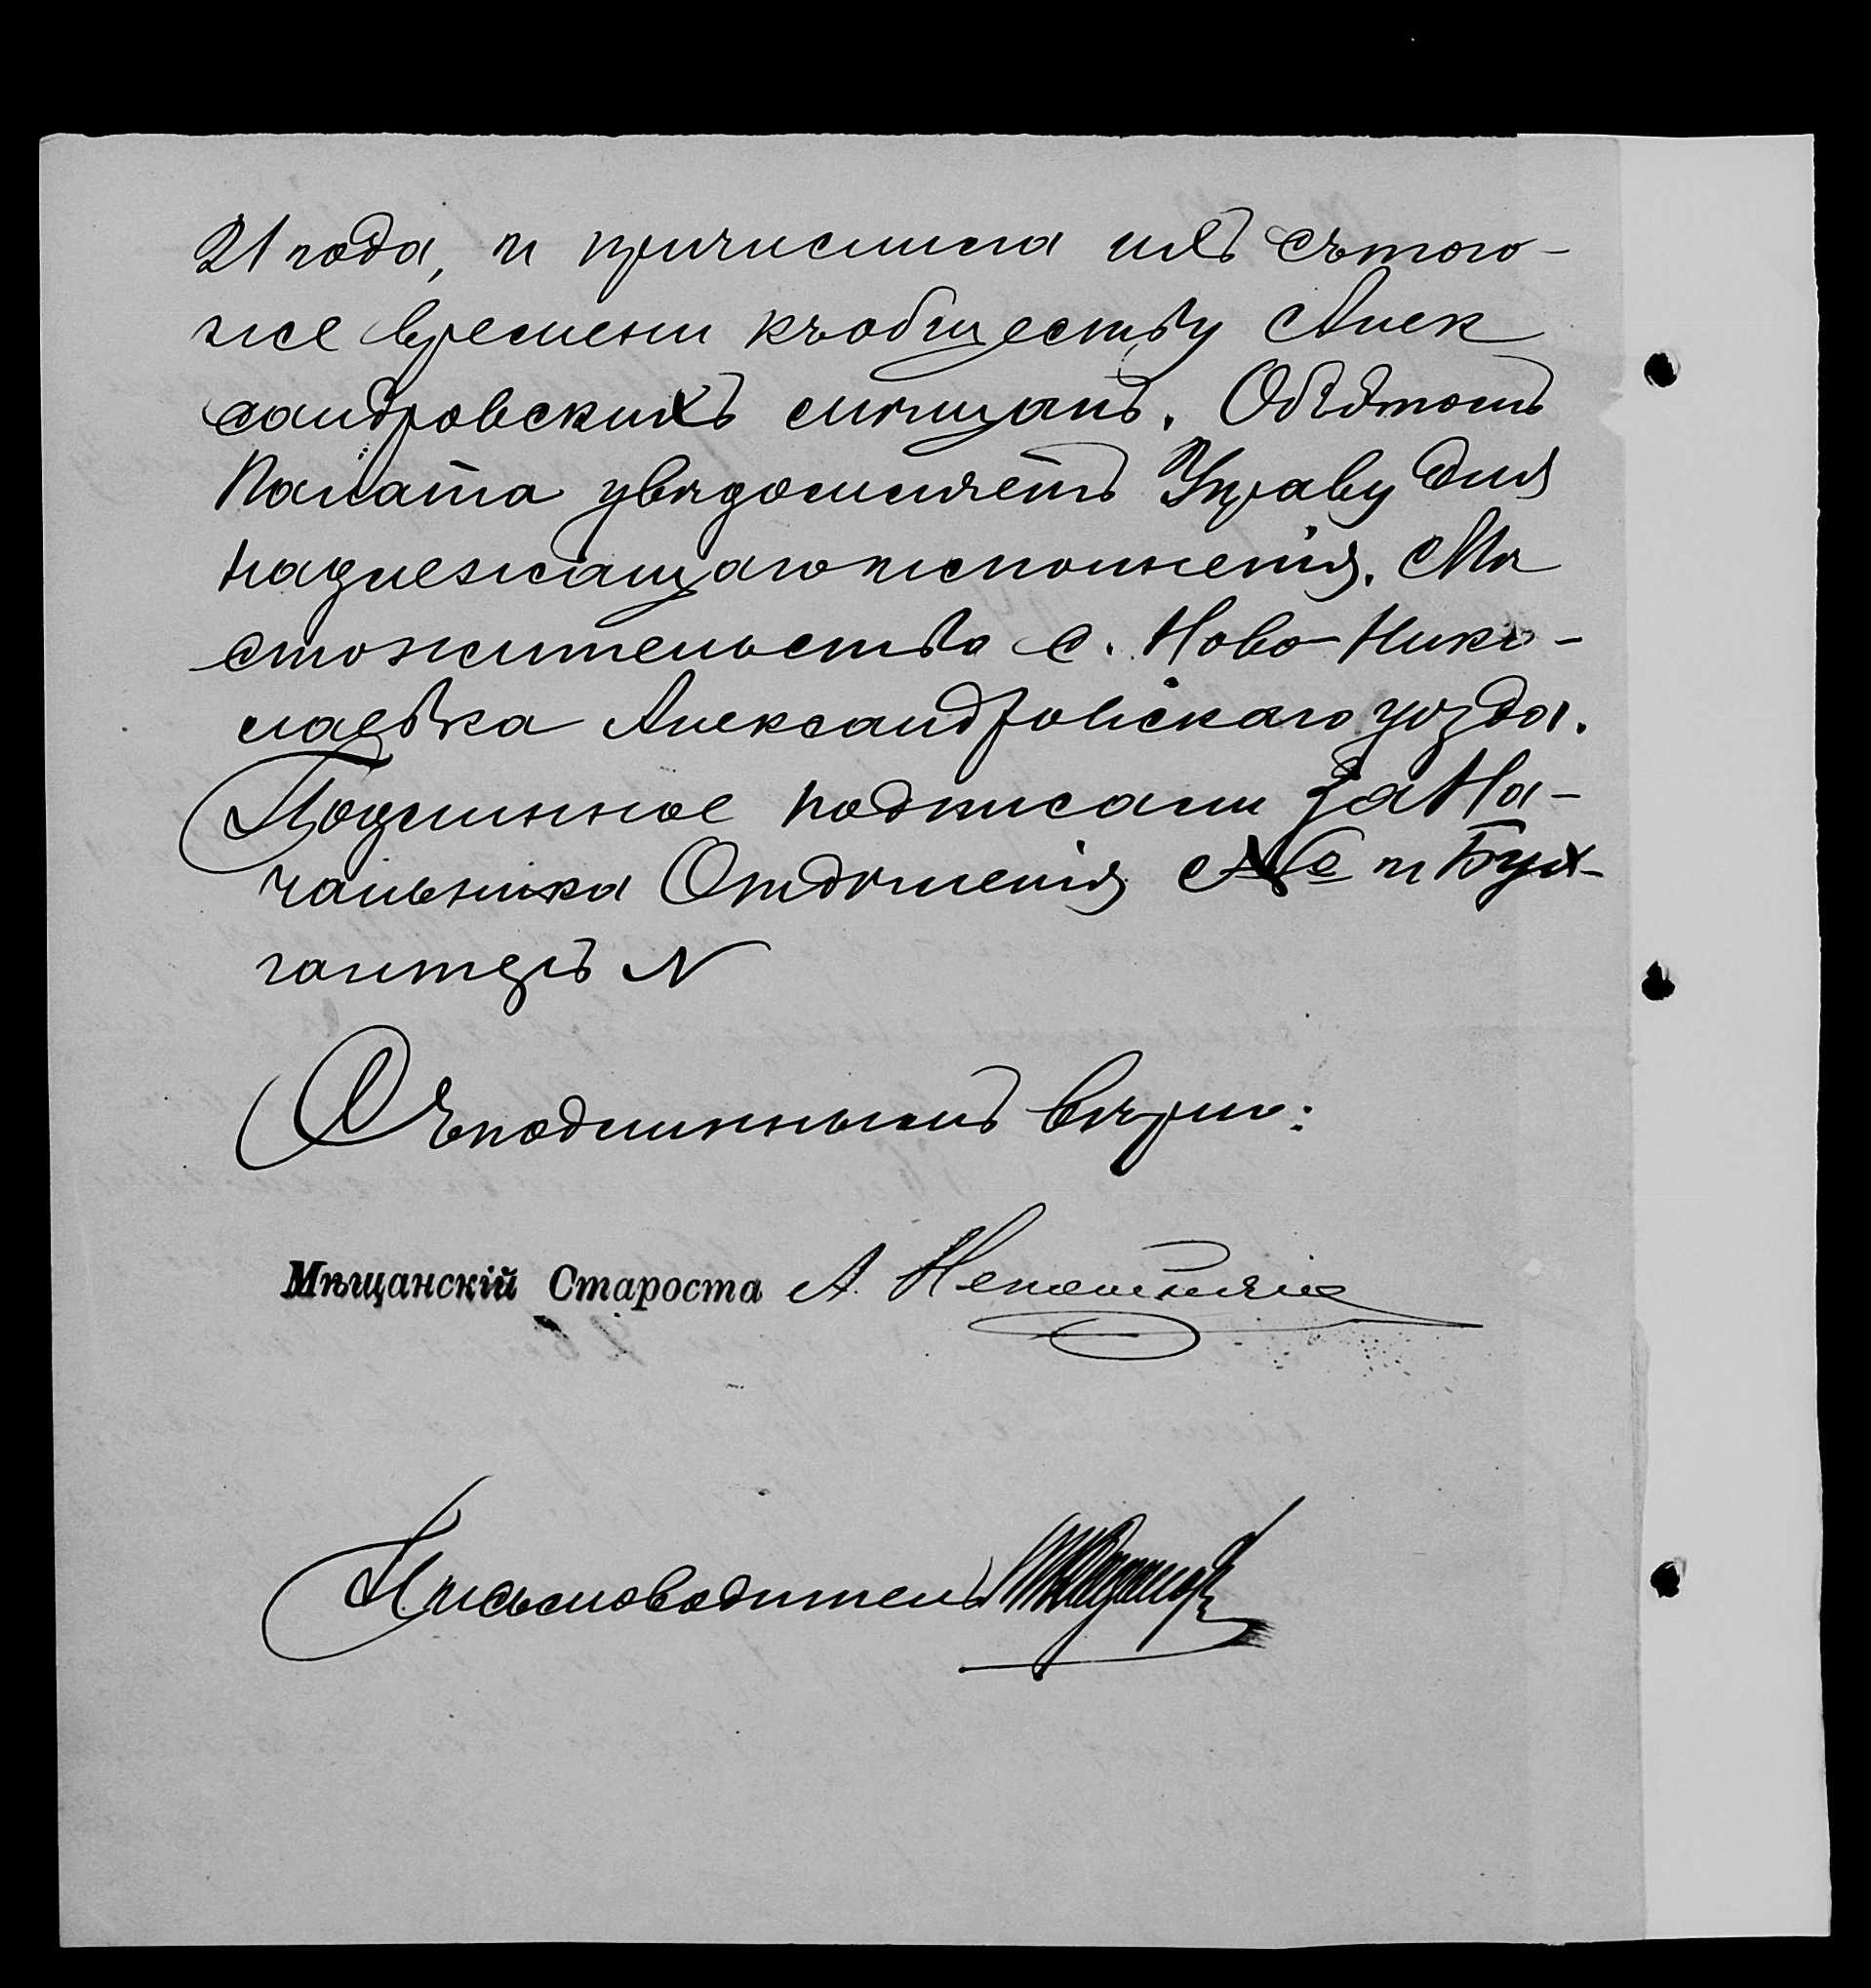 21 года, и причислила ихъ съ того-
же времени къ обществу Алек
сандровскихъ мѣщанъ. Объ этомъ
Палата увѣдомляетъ Управу для
надлежащаго исполненія. Мѣ
стожительства с. Ново-Нико-
лаевка Александровскаго уѣзда.
Подлинное подписали За На-
чальника Отдѣленія № и Бух-
галтеръ N
Съ подлиннымъ вѣрно:
Мѣщанскій Староста А.
Письмоводитель